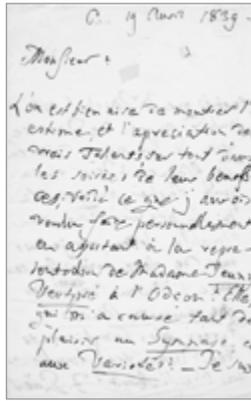 C. 19 Avril 1839 -
Monsieur :
L'on est bien aise de montrer l'
estime et l'apreciation de
vrais Talents sur tout dans
les soirées de leur benef
ces voila ce que j'aurois
voulu faire personellement
en assistant à la repre-
sentation de Madame Jenny
Vertpré à l'Odeon : Elle
qui m'a causé tant de
plaisir au Gymnase et
aux Varietés : - Je